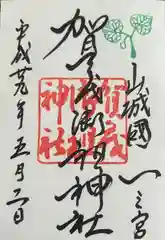 山城國一之宮
賀茂御祖神社
平成廿九年五月二日
賀茂
御祖
神社